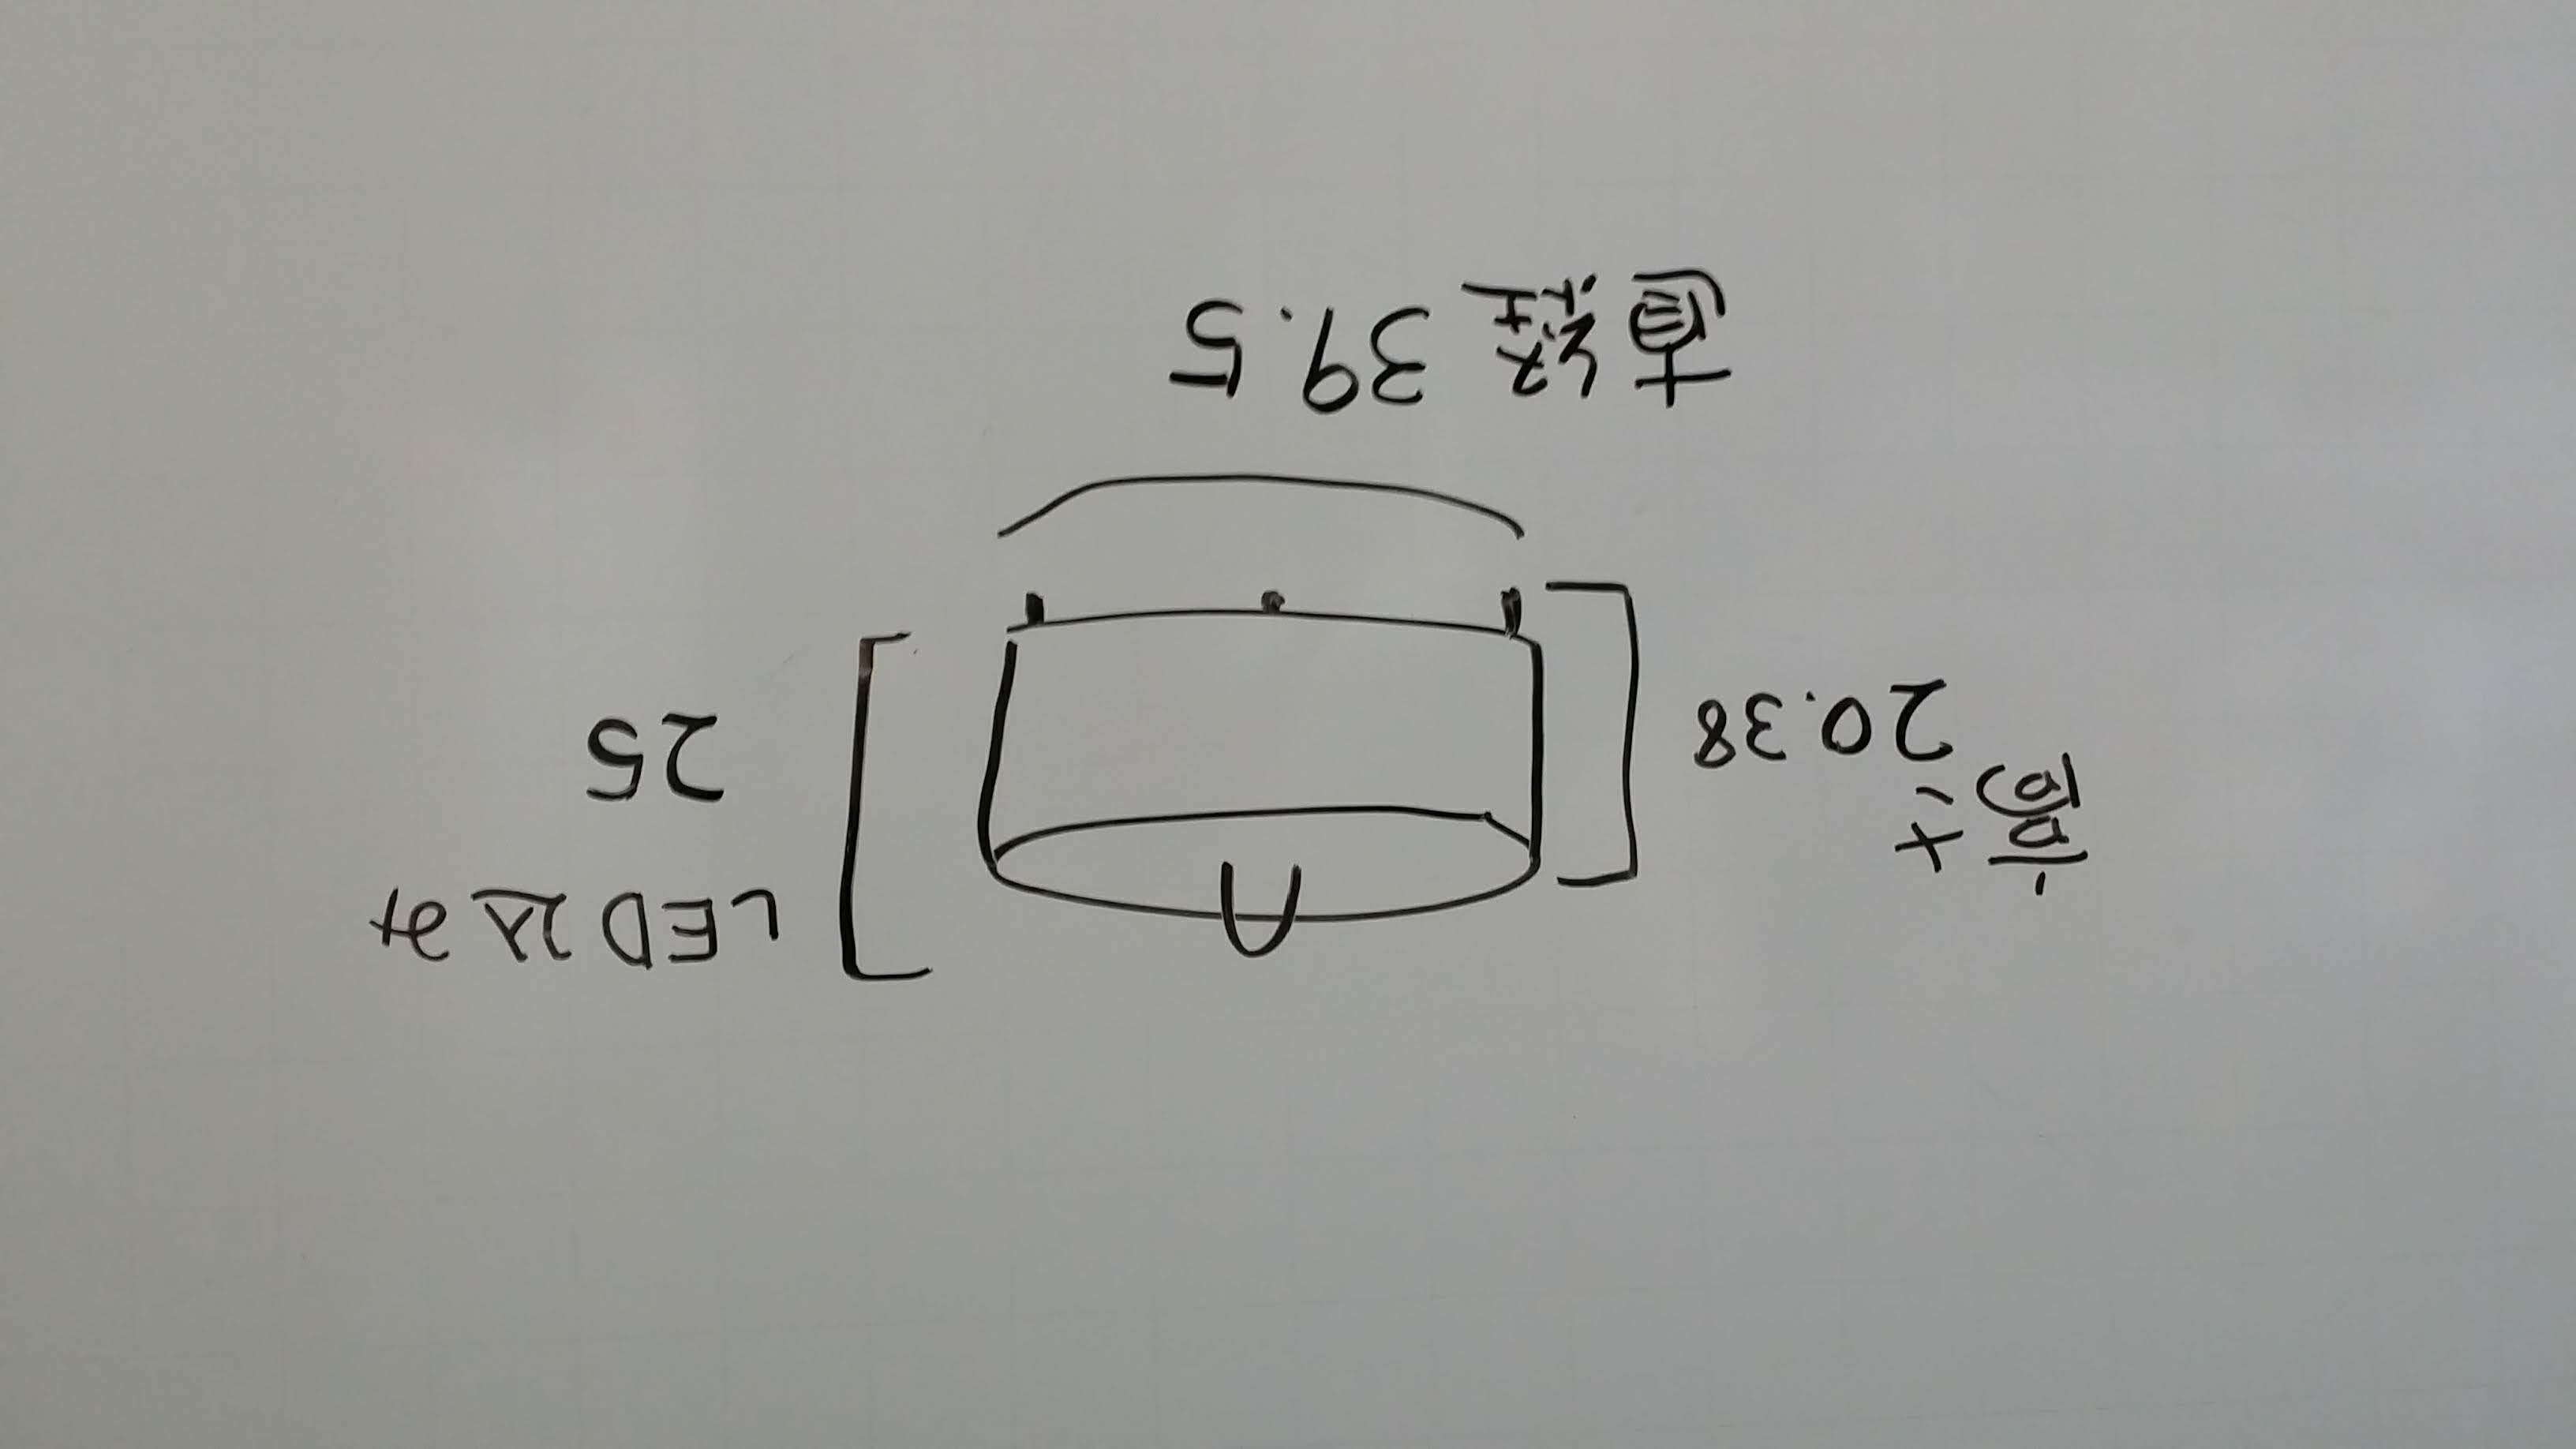 高さ
20.38
LED込み
25
直経 39.5